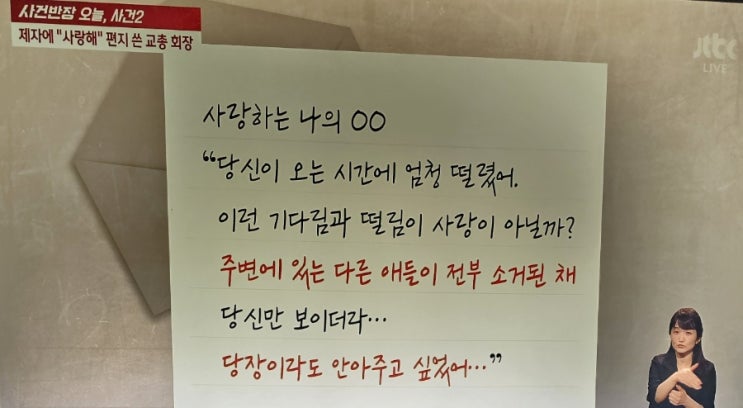 사건반장 오늘, 사건2
제자에 "사랑해" 편지 쓴 교총 회장
jtbc
LIVE
사랑하는 나의 OO
“당신이 오는 시간에 엄청 떨렸어.
이런 기다림과 떨림이 사랑이 아닐까?
주변에 있는 다른 애들이 전부 소거된 채
당신만 보이더라…
당장이라도 안아주고 싶었어…”